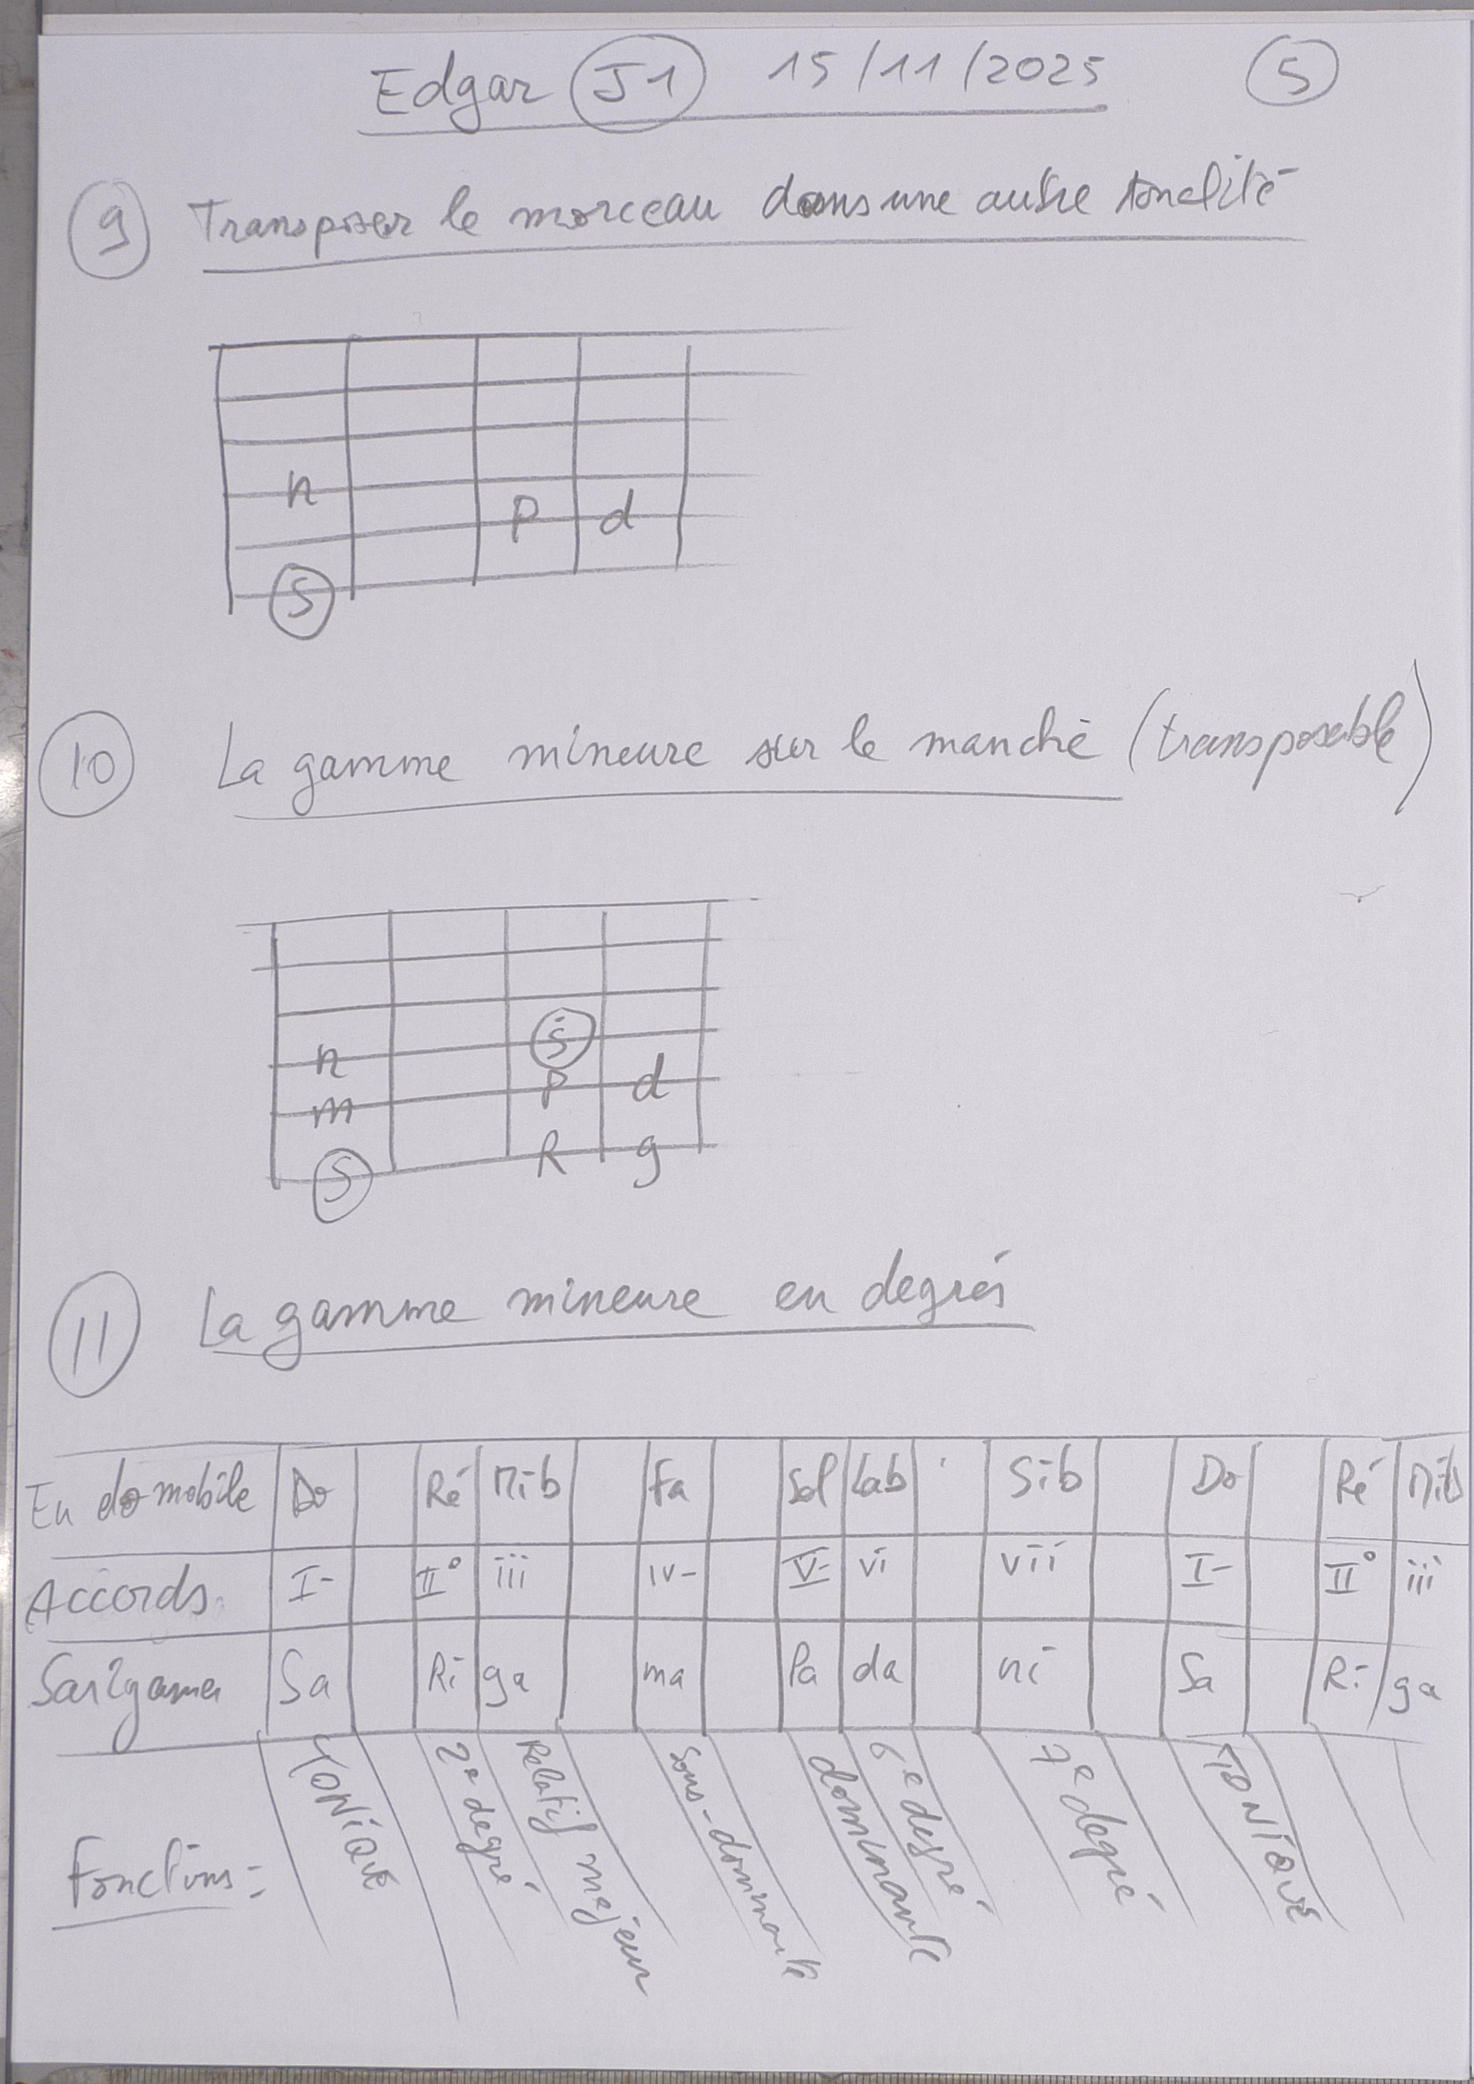 Edgar J1 15/11/2025 5
9 Transposer le morceau dans une autre tonalité
n
P d
S
10 La gamme mineure sur le manche (transposable)
n Ṡ
m P d
S R g
11 La gamme mineure en degrés
En do mobile Do Ré Mib Fa Sol Lab Sib Do Ré Mib
Accords I- II° iii iv- V- vi vii I- II° iii
Sargame Sa Ri ga ma Pa da ni Sa Ri ga
Fonctions: TONIQUE 2e degré Relatif majeur sous-dominante dominante 6e degré 7e degré TONIQUE